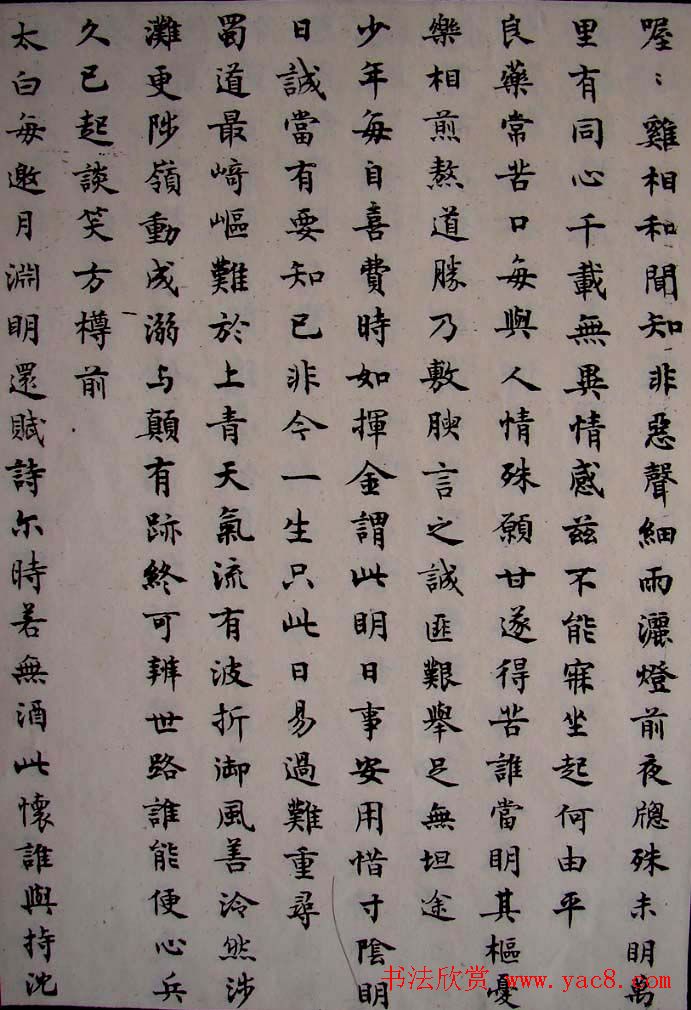 喔〻雞相和聞知非惡聲細雨灑燈前夜牕殊未明萬
里有同心千載無異情感茲不能寐坐起何由平
良藥常苦口每與人情殊願甘遂得苦誰當明其樞憂
樂相煎熬道勝乃敷腴言之誠匪艱舉足無坦途
少年每自喜費時如揮金謂此明日事安用惜寸陰明
日誠當有要知已非今一生只此日易過難重尋
蜀道最﨑嶇難於上青天氣流有波折御風善泠然涉
灘更陟嶺動成溺与顛有跡終可辨世路誰能便心兵
久已起談笑方樽前
太白每邀月淵明還賦詩尔時若無酒此懷誰與持沈
书法欣赏 www.yac8.com